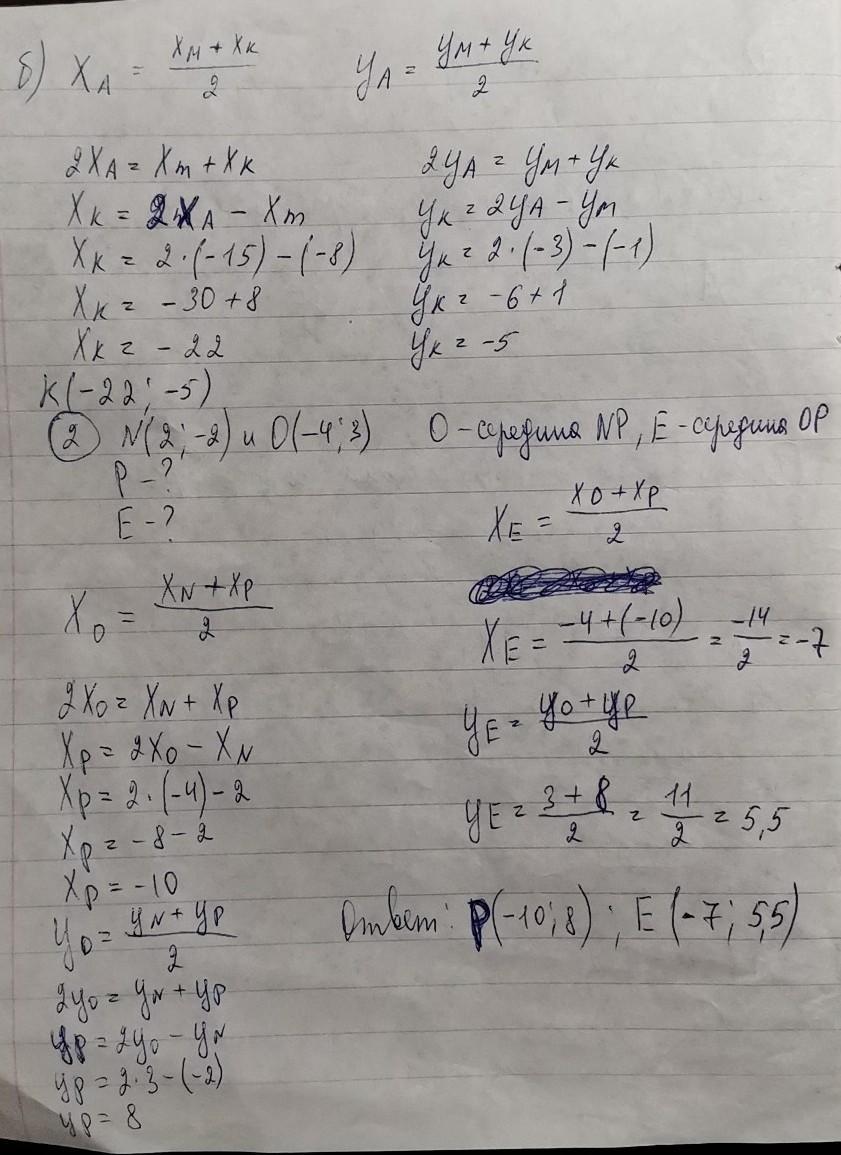 б) X_A = (X_M + X_K)/2    y_A = (y_M + y_K)/2
2X_A = X_m + X_K    2y_A = y_M + y_K
X_K = 2X_A - X_m    y_K = 2y_A - y_M
X_K = 2·(-15) - (-8)    y_K = 2·(-3) - (-1)
X_K = -30 + 8    y_K = -6 + 1
X_K = -22    y_K = -5
K(-22; -5)
② N(2; -2) и O(-4; 3)    O - середина NP, E - середина OP
P - ?
E - ?
X_O = (X_N + X_P)/2
2X_O = X_N + X_P
X_P = 2X_O - X_N
X_P = 2·(-4) - 2
X_P = -8 - 2
X_P = -10
y_O = (y_N + y_P)/2
2y_O = y_N + y_P
y_P = 2y_O - y_N
y_P = 2·3 - (-2)
y_P = 8
X_E = (X_O + X_P)/2
X_E = (-4 + (-10))/2 = -14/2 = -7
y_E = (y_O + y_P)/2
y_E = (3 + 8)/2 = 11/2 = 5,5
Ответ: P(-10; 8); E(-7; 5,5)